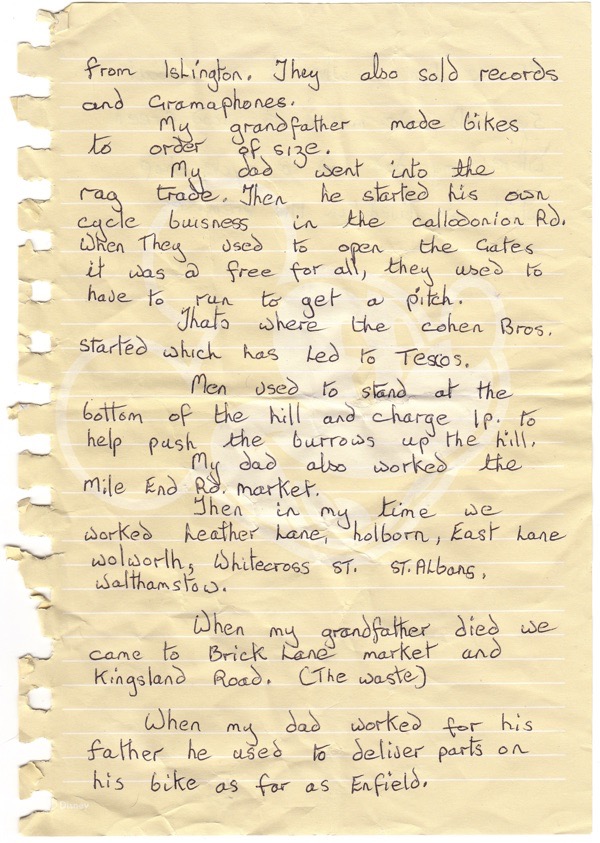 from Islington. They also sold records
and Gramaphones.
My grandfather made bikes
to order of size.
My dad went into the
rag trade. Then he started his own
cycle buisness in the calledonion Rd.
When They used to open the Gates
it was a free for all, they used to
have to run to get a pitch.
Thats where the cohen Bros.
started which has Led to Tescos.
Men used to stand at the
bottom of the hill and charge 1p. to
help push the burrows up the hill.
My dad also worked the
Mile End Rd. market.
Then in my time we
worked Leather Lane, holborn, East Lane
wolworth, Whitecross ST. ST. Albans,
Walthamstow.
When my grandfather died we
came to Brick Lane market and
Kingsland Road. (The waste)
When my dad worked for his
father he used to deliver parts on
his bike as far as Enfield.
Disney